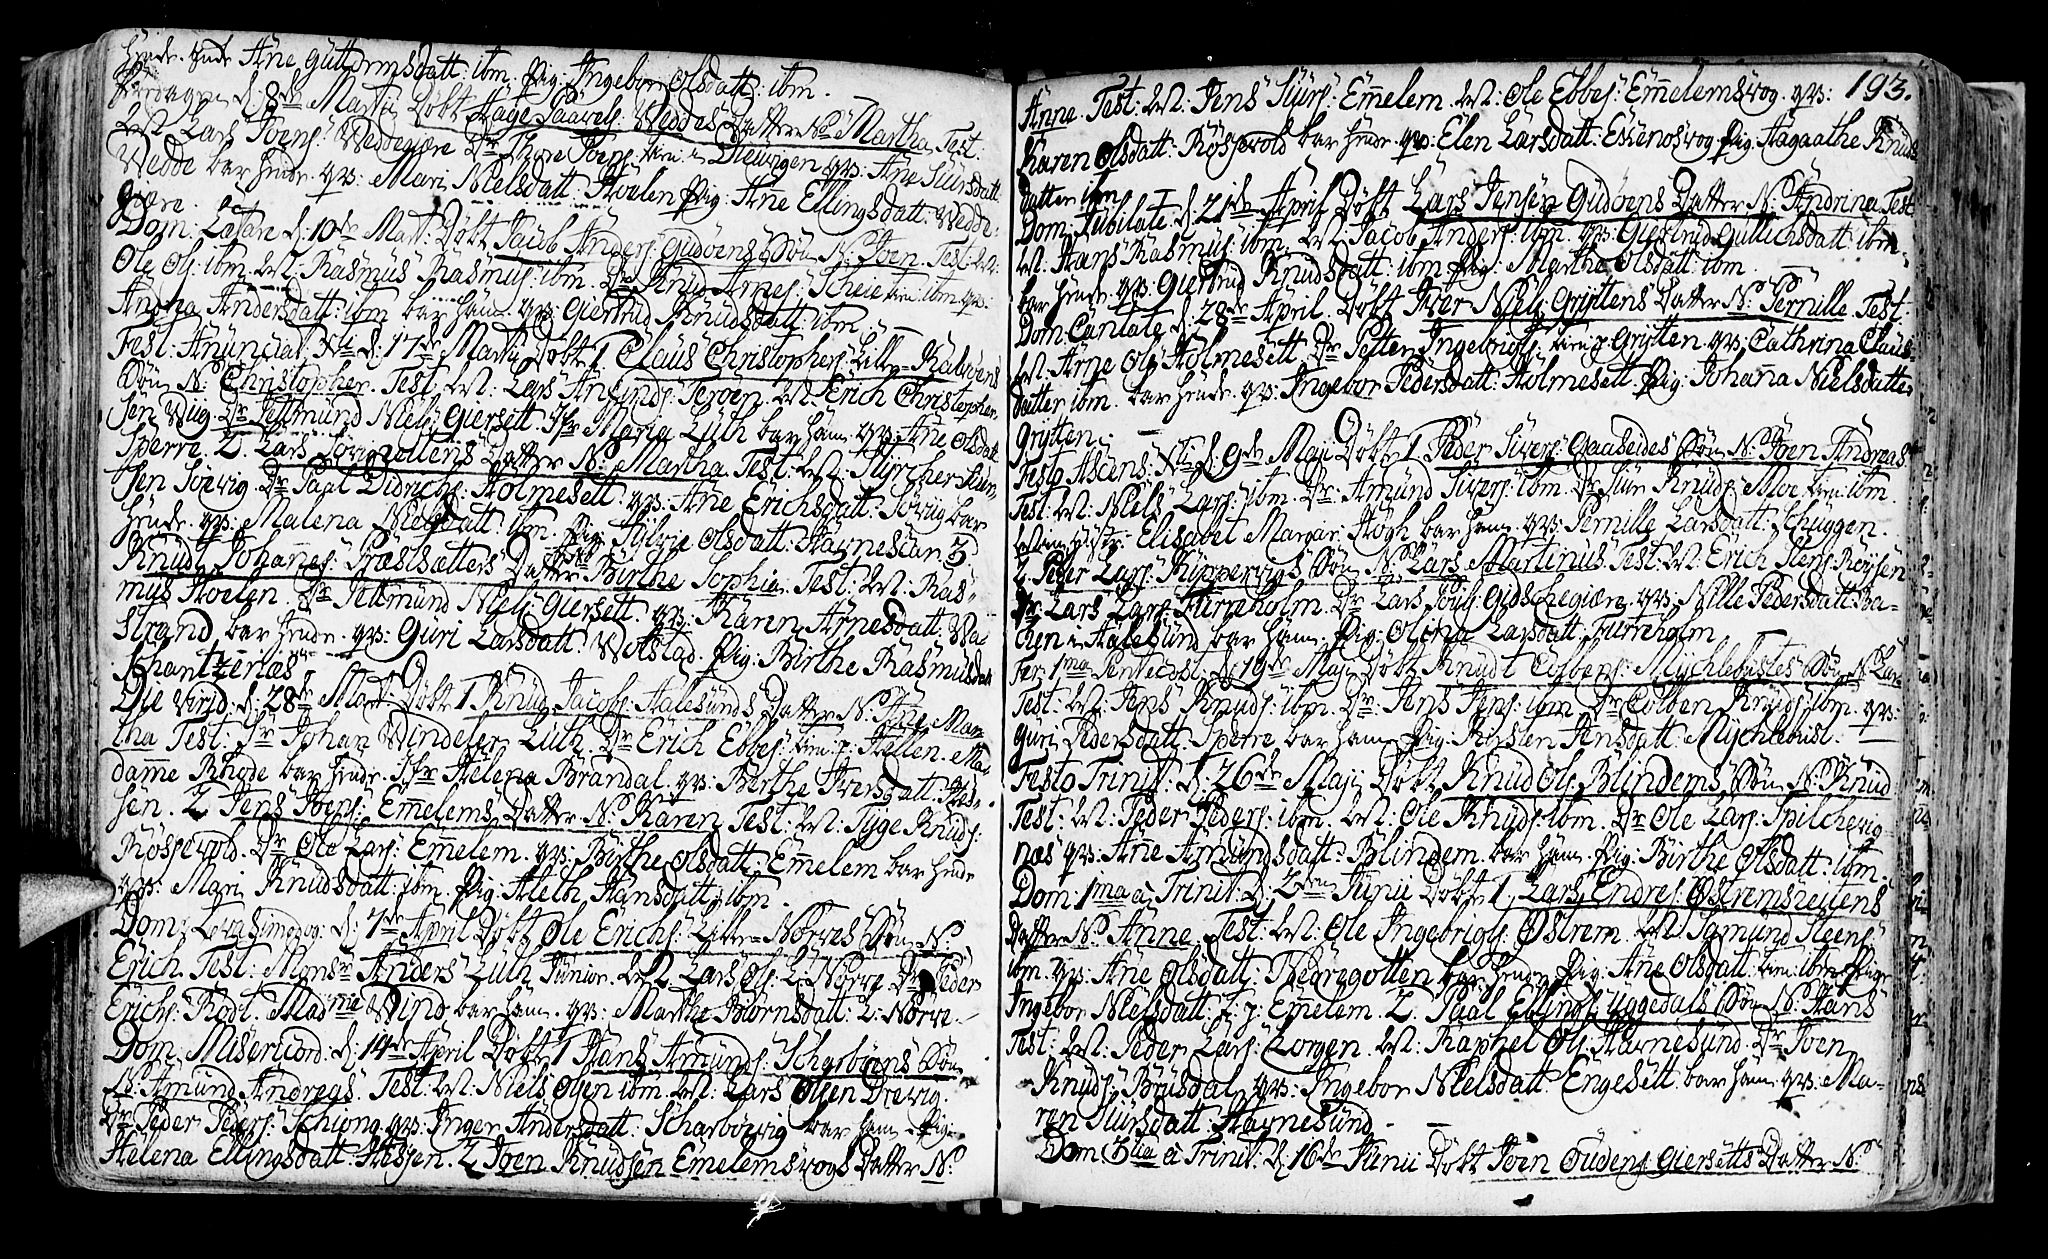 hende. Ane Guttormsdatt: ibm. Pig: Ingebor Olsdatt: ibm.
Fredagen d: 8de Martii Döbt Aage Paavels: Veddes Datter N: Martha Test:
Lars Joens: Veddegiære Dr: Thore Joens: Dievigen qv: Ane Siursdatt:
Vedde bar hende. qv: Mari Nielsdatt: Hoelen Pig: Ane Ellingsdatt: Vedde-
giære.
Dom: Lætare d: 10de Mart: Döbt Jacob Anders: Gidöens Sön N: Joen. Test: M:
Ole Ols: ibm. M: Rasmus Rasmus: ibm. Dr: Knud Arnes: Scheie ibm. qv:
Andersdatt: ibm bar ham. qv: Giertrud Knudsdatt: ibm.
Fest: Anunciat: d: 17de Martii Döbt 1 Claus Christophers: Lille-Kalvöens
Sön N: Christopher. Test: M: Lars Amunds: Teröen. M: Erich Christopher-
sen Viig. Dr: Niels: Giersett. Jfr: Maria Lüth bar ham. qv: Ane Olsdatt:
Sperre. 2. Lars Datter N: Martha Test: M:
sen Sörvig. Dr: Paul Didrichs: Holmesett. qv: Ane Erichsdatt: Sörvig bar
hende. qv: Malena Nielsdatt: ibm. Pig: Sylvie Olsdatt: Havnesund 3.
Knud Johannes: Præstsætters Datter Birthe Sophia. Test: M: Ras-
mus Hoelen. Dr: Niels: Giersett. qv: Karen Arnesdatt: Vaa-
Strand bar hende. qv: Guri Larsdatt: Vestad. Pig: Birthe Rasmusdatt
Schantzenæs
Die Virid: d: 28de Mart: Döbt 1 Knud Jacobs: Aalesunds Datter N: Ane Mar-
tha Test: Hr: Johan Windeler Lüth. Dr: Erich Ebbes: Hellen. Ma-
dame Rhode bar hende. Jfr: Helena Brandal. qv: Berthe Iversdatt:
sen. 2 Jens Joens: Emelems Datter N: Karen Test: M: Tyge Knuds:
Rössevold. Dr: Ole Lars: Emelem. qv: Birthe Olsdatt: Emelem bar hende
qv: Mari Knudsdatt: ibm. Pig: Aleth Hansdatt: ibm.
Dom: Qvasimodog: d: 7de April Döbt Ole Erichs: Lille-Nörves Sön N:
Erich. Test: Monsr: Anders Lüth Junior. M: Lars Ols: L: Nörve Dr: Peder
Erichs: Rödt. Madme Wind bar ham. qv: Marthe Biörnsdatt: L: Nörve.
Dom: Misericord: d: 14de April Döbt 1 Hans Amunds: Scharböens Sön
N: Amund Andreas. Test: M: Niels Öyen ibm. M: Lars Ölsen Drevig.
Dr: Peder Peders: Schiong. qv: Inger Andersdatt: Scharböevig bar ham Pig:
Helena Ellingsdatt: Hessen. 2 Joen Knudsen Emelemsvogs Datter N:
193.
Anne. Test: M: Jens Siurs: Emelem. M: Ole Ebbes: Emelemsvog. qv:
Karen Olsdatt: Rössevold bar hende. qv: Elen Larsdatt: Pig: Aagaathe Knuds-
datter ibm.
Dom: Jubilate d: 21de April Döbt Lars Jensen Gidöens Datter N: Andrina Test
M: Hans Rasmus: ibm. M: Jacob Anders: ibm. qv: Giertrud Gullichsdatt: ibm.
bar hende. qv: Giertrud Knudsdatt: ibm Pig: Marthe Olsdatt: ibm.
Dom: Cantate d: 28de April. Döbt Iver Niels: Gryttens Datter N: Pernille. Test:
M: Arne Ols: Holmesett. Dr: Petter Ingebrigts: Grytten qv: Cathrina Claus-
datter ibm. bar hende. qv: Ingebor Pedersdatt: Holmesett. Pig: Johanna Nielsdatter
Grytten.
Festo Ascens: d: 9de Maji Döbt 1 Peder Sivers: Gaaseides Sön N: Joen Andreas
Test: M: Niels Lars: ibm. Dr: Amund Sivers: ibm. Dr: Siur Knuds: Moe ibm.
Elisabet Margar: Hogh bar ham. qv: Pernille Larsdatt: Schuggen.
2. Peder Lars: Kippervigs Sön N: Lars Martinus Test: M: Erich Stens: Röysen
Dr: Lars Lars: Furreholm. Dr: Lars Gidschegiære. qv: Nille Pedersdatt: Ba-
chen i Aalesund bar ham. Pig: Olina Larsdatt: Furreholm
Fer: 1ma Pentecost: d: 19de Maji Döbt Knud Colbens: Mychlebustes Sön N: Lars
Test: M: Jens Knuds: ibm. Dr: Jens Jens: ibm Dr: Colben Knuds: ibm. qv:
Guri Pedersdatt: Sperre bar ham. Pig: Kirsten Jensdatt: Mychlebust.
Festo Trinit: d: 26de Maji Döbt Knud Ols: Blindems Sön N: Knud
Test: M: Peder Peders: ibm. M: Ole Knuds: ibm. Dr: Ole Lars: Spilchevig-
næs qv: Ane Amundsdatt: Blindem. bar ham. Pig: Birthe Olsdatt: ibm.
Dom: 1ma a Trinit: d: 2den Junii Döbt 1. Lars Endres: Östremsreitens
Datter N: Anne Test: M: Ole Ingebrigts: Östrem. M: Sjmund Steens:
ibm. qv: Ane Olsdatt: bar hende Pig: Ane Olsdatt: ibm. Pig:
Ingebor Nielsdatt: Emelem. 2. Paal Ellings: Uggedals Sön N: Hans
Test: M: Peder Lars: Lorgen. M: Raphel Ols: Havnesund. Dr: Joen
Knuds: Brusdal. qv: Ingebor Nielsdatt: Engesett. bar ham. qv: Ma-
ren Siursdatt: Havnesund.
Dom: 3tia a Trinit: d: 16de Junii Döbt Joen Oudens: Giersetts Datter N: